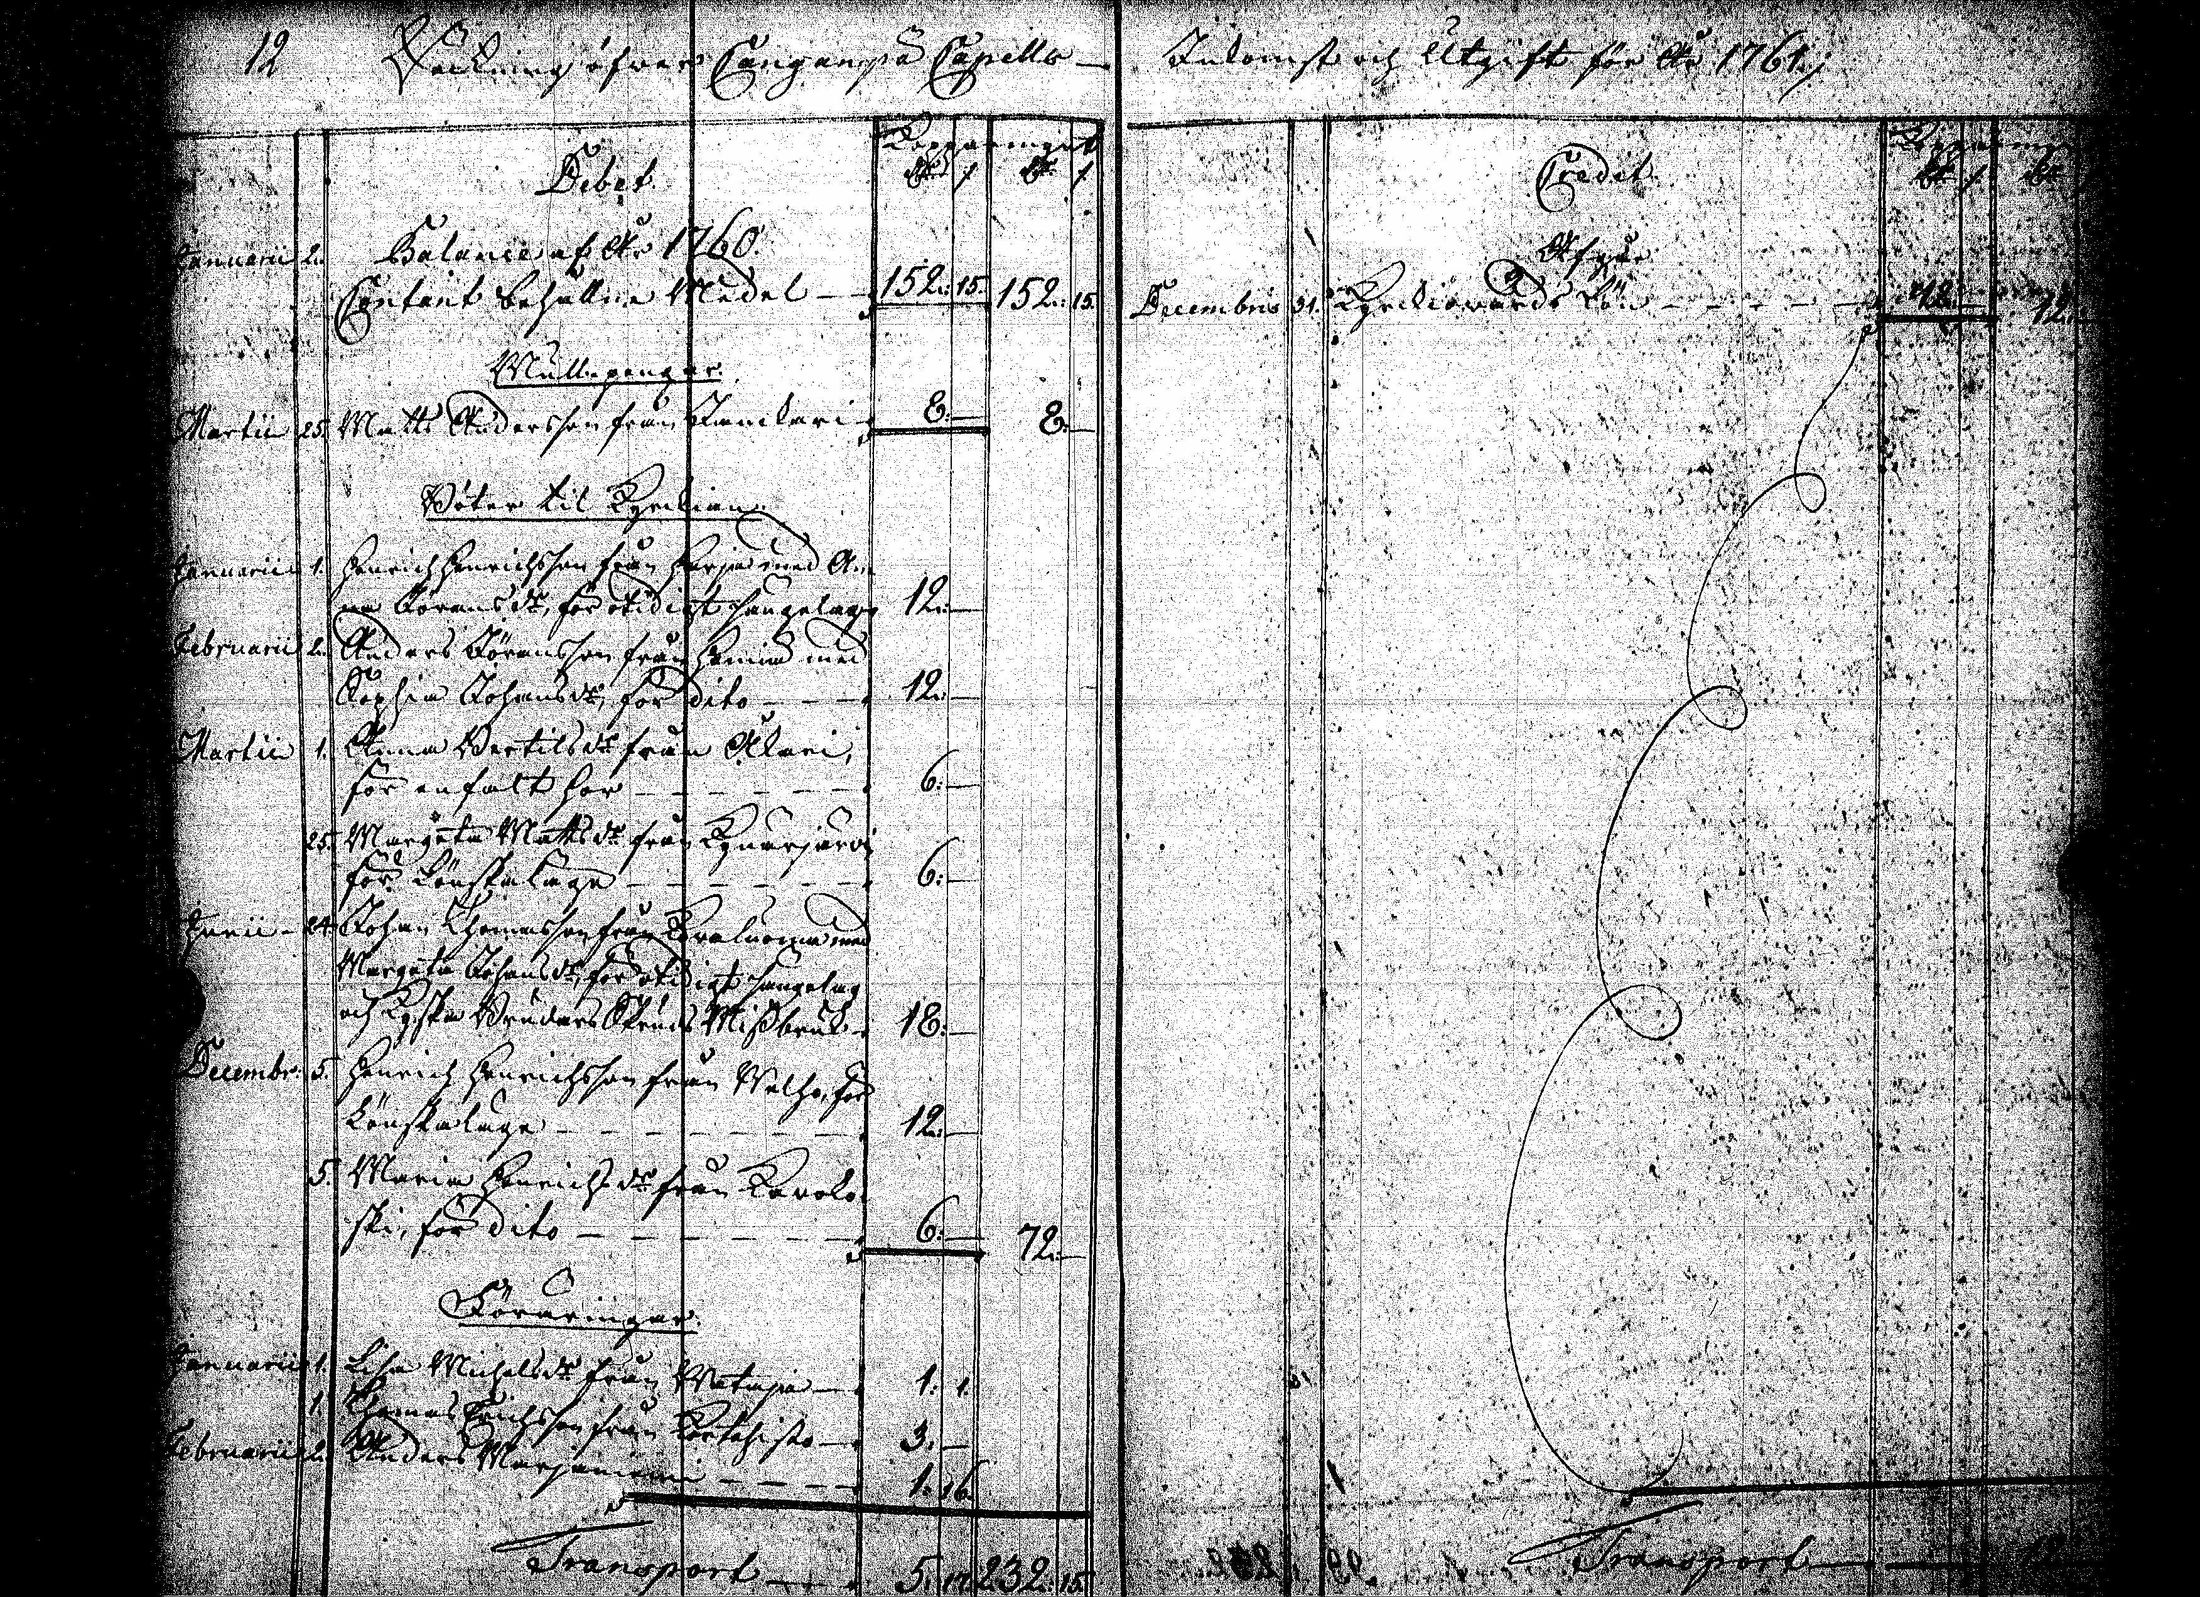 12 Räckning öfwer Canganpä Capells — Inkomst och Utgift för Åhr 1761.
Debet. Kopparmynt
Dr / Dr /
Januarii 2. Balance af Åhr 1760.
Contant behållne Medel — 152. 15. 152. 15.
Mullepengar.
Martii 25. Matts Andersson från — 8. — 8. —
Böter til Kyrkian.
Januarii 1. Henrich Henrichsson från Harja med An-
na Jörans dr, för otidigt sängelag 12. —
Februarii 2. Anders Jöransson från med
Sophia Johans dr, för dito — — — 12. —
Martii 1. Anna Bertils dr från Alkari,
för enfalt hor — — — — — 6. —
25. Margeta Matts dr från Kynärjärvi
för Lönskaläge — — — — — 6. —
Junii — 24. Johan Thomasson från med
Margeta Johans dr, för otidigt sängelag
och Kyska Brudars Skruds Missbruk — 18. —
Decembr. 5. Henrich Henrichsson från Welho, för
Lönskaläge — — — — — — 12. —
5. Maria Henrichs dr från Karoko-
ski, för dito — — — — — 6. — 72. —
Föräringar.
Januarii 1. Lisa Michels dr från Wataja — 1. 1.
1. Thomas Erichsson från — 3. —
Februarii 2. Anders Marjaniemi — — — 1. 16.
Transport — — 5. 17. 232. 15.
Credit. Kopparmynt
Dr / Dr
Afgår
Decembris 31. Kyrkiowärds Lön — — — — 12. — 12. —
Transport — — 12